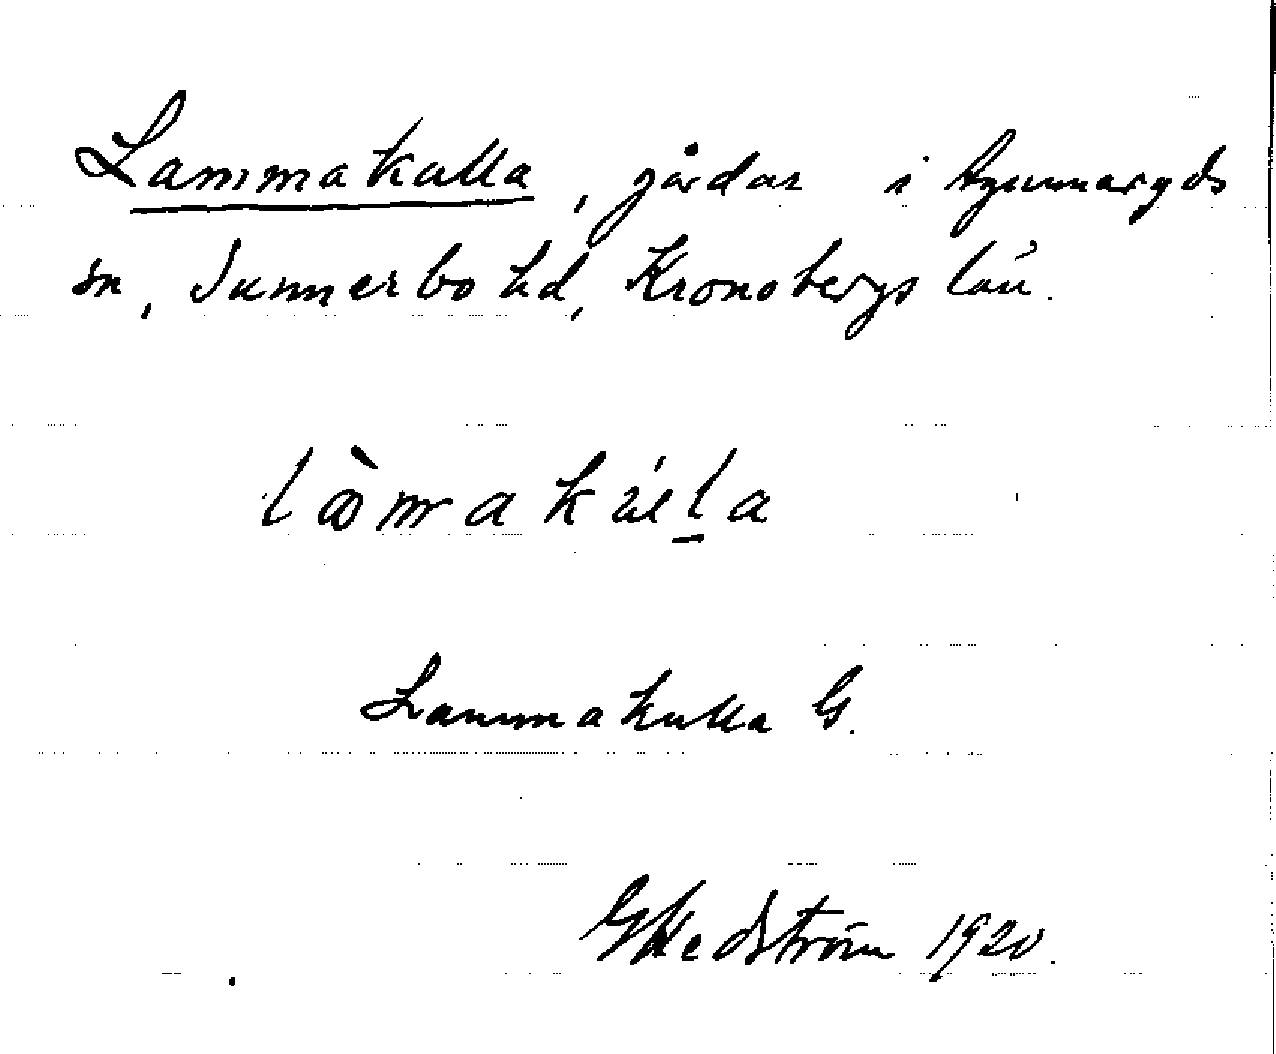 Lammakulla, gårdar i Agunnaryds
sn, Sunnerbo hd, Kronobergs län.
làmakúlla
Lammakulla G.
G Hedström 1920.